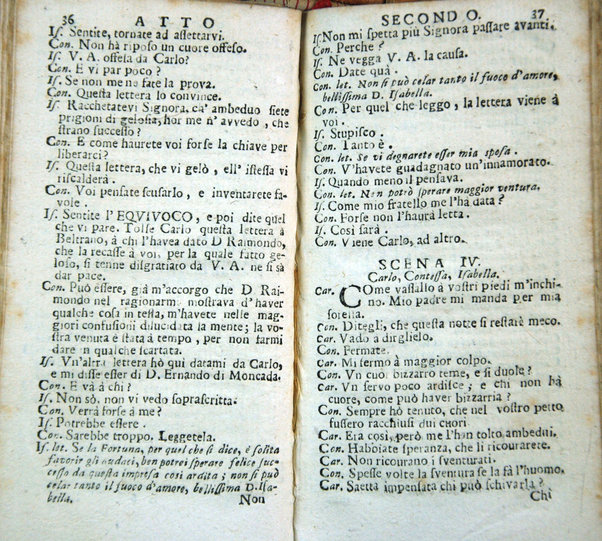 36 ATTO
Is. Sentite, tornate ad assettarvi.
Con. Non hà riposo un cuore offeso.
Is. V. A. offesa da Carlo?
Con. E vi par poco?
Is. Se non me ne fate la prova.
Con. Questa lettera lo convince.
Is. Racchetatevi Signora, ca' ambeduo siete
prigioni di gelosia, hor me n' avvedo, che
strano successo?
Con. E come haurete voi forse la chiave per
liberarci?
Is. Questa lettera, che vi gelò, ell' istessa vi
riscalderà.
Con. Voi pensate scusarlo, e inventarete fa-
vole.
Is. Sentite l'EQVIVOCO, e poi dite quel
che vi pare. Tolse Carlo questa lettera à
Beltrano, à chi l'havea dato D Raimondo,
che la recasse à voi, per la quale fatto ge-
loso, si tenne disgratiato da V. A. ne si sà
dar pace.
Con. Può essere, già m'accorgo che D. Rai-
mondo nel ragionarmi mostrava d'haver
qualche cosa in testa, m'havete nelle mag-
giori confusioni dilucidata la mente; la vo-
stra venuta è stata à tempo, per non farmi
dare in qualche scartata.
Is. Vn'altra lettera hò quì datami da Carlo,
e mi disse esser di D. Ernando di Moncada.
Con. E và à chi?
Is. Non sò, non vi vedo soprascritta.
Con. Verrà forse à me?
Is. Potrebbe essere.
Con. Sarebbe troppo. Leggetela.
Is. let. Se la Fortuna, per quel che si dice, è solita
favorir gli audaci, ben potrei sperare felice suc-
cesso da questa impresa così ardita; non si può
celar tanto il fuoco d'amore, bellissima D. Isa-
bella.
Non
SECONDO. 37
Is. Non mi spetta più Signora passare avanti.
Con. Perche?
Is. Ne vegga V. A. la causa.
Con. Date quà.
Con. let. Non si può celar tanto il fuoco d'amore,
bellissima D. Isabella.
Con. Per quel che leggo, la lettera viene à
voi.
Is. Stupisco.
Con. Tant è.
Con. let. Se vi degnarete esser mia sposa.
Con. V'havete guadagnato un'innamorato.
Is. Quando meno il pensava.
Con. let. Non potrò sperare maggior ventura.
Is. Come mio fratello me l'hà data?
Con. Forse non l'haurà letta.
Is. Così sarà.
Con. Viene Carlo, ad altro.
SCENA IV.
Carlo, Contessa, Isabella.
Car. COme vassallo à vostri piedi m'inchi-
no. Mio padre mi manda per mia
sorella.
Con. Ditegli, che questa notte si restarà meco.
Car. Vado à dirglielo.
Con. Fermate.
Car. Mi fermo à maggior colpo.
Con. Vn cuor bizzarro teme, e si duole?
Car. Vn servo poco ardisce; e chi non hà
cuore, come può haver bizzarria?
Con. Sempre hò tenuto, che nel vostro petto
fussero racchiusi duri cuori
Car. Era così, però me l'han tolto ambedui.
Con. Habbiate speranza, che li ricourarete.
Car. Non ricourano i sventurati.
Con. Spesse volte la sventura se la fà l'huomo.
Car. Saetta impensata chi può schivarla?
Chi